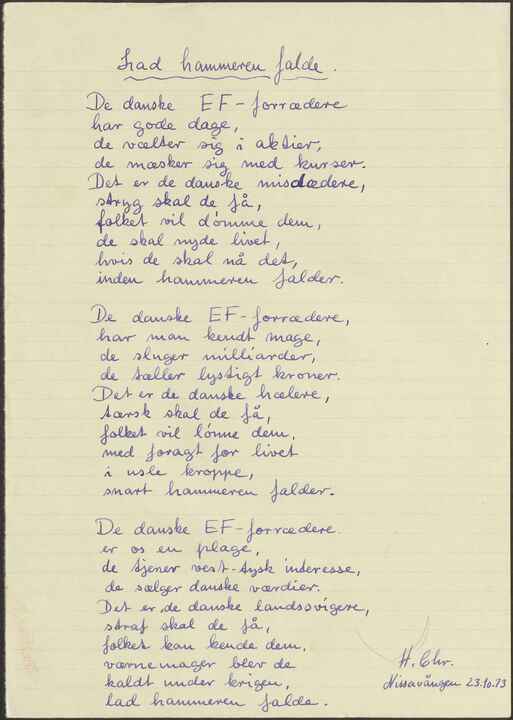 Lad hammeren falde.
De danske EF-forrædere
har gode dage,
de vælter sig i aktier,
de mæsker sig med kurser.
Det er de danske misdædere,
stryg skal de få,
folket vil dómme dem,
de skal nyde livet,
hvis de skal nå det,
inden hammeren falder.
De danske EF-forrædere,
har man kendt mage,
de sluger milliarder,
de tæller lystigt kroner.
Det er de danske hælere,
tærsk skal de få,
folket vil lónne dem,
med foragt for livet
i usle kroppe,
snart hammeren falder.
De danske EF-forrædere
er os en plage,
de tjener vest-tysk interesse,
de sælger danske værdier.
Det er de danske landssvigere,
straf skal de få,
folket kan kende dem,
værnemager blev de
kaldt under krigen,
lad hammeren falde.
H. Chr.
Nissavången 23.10.73